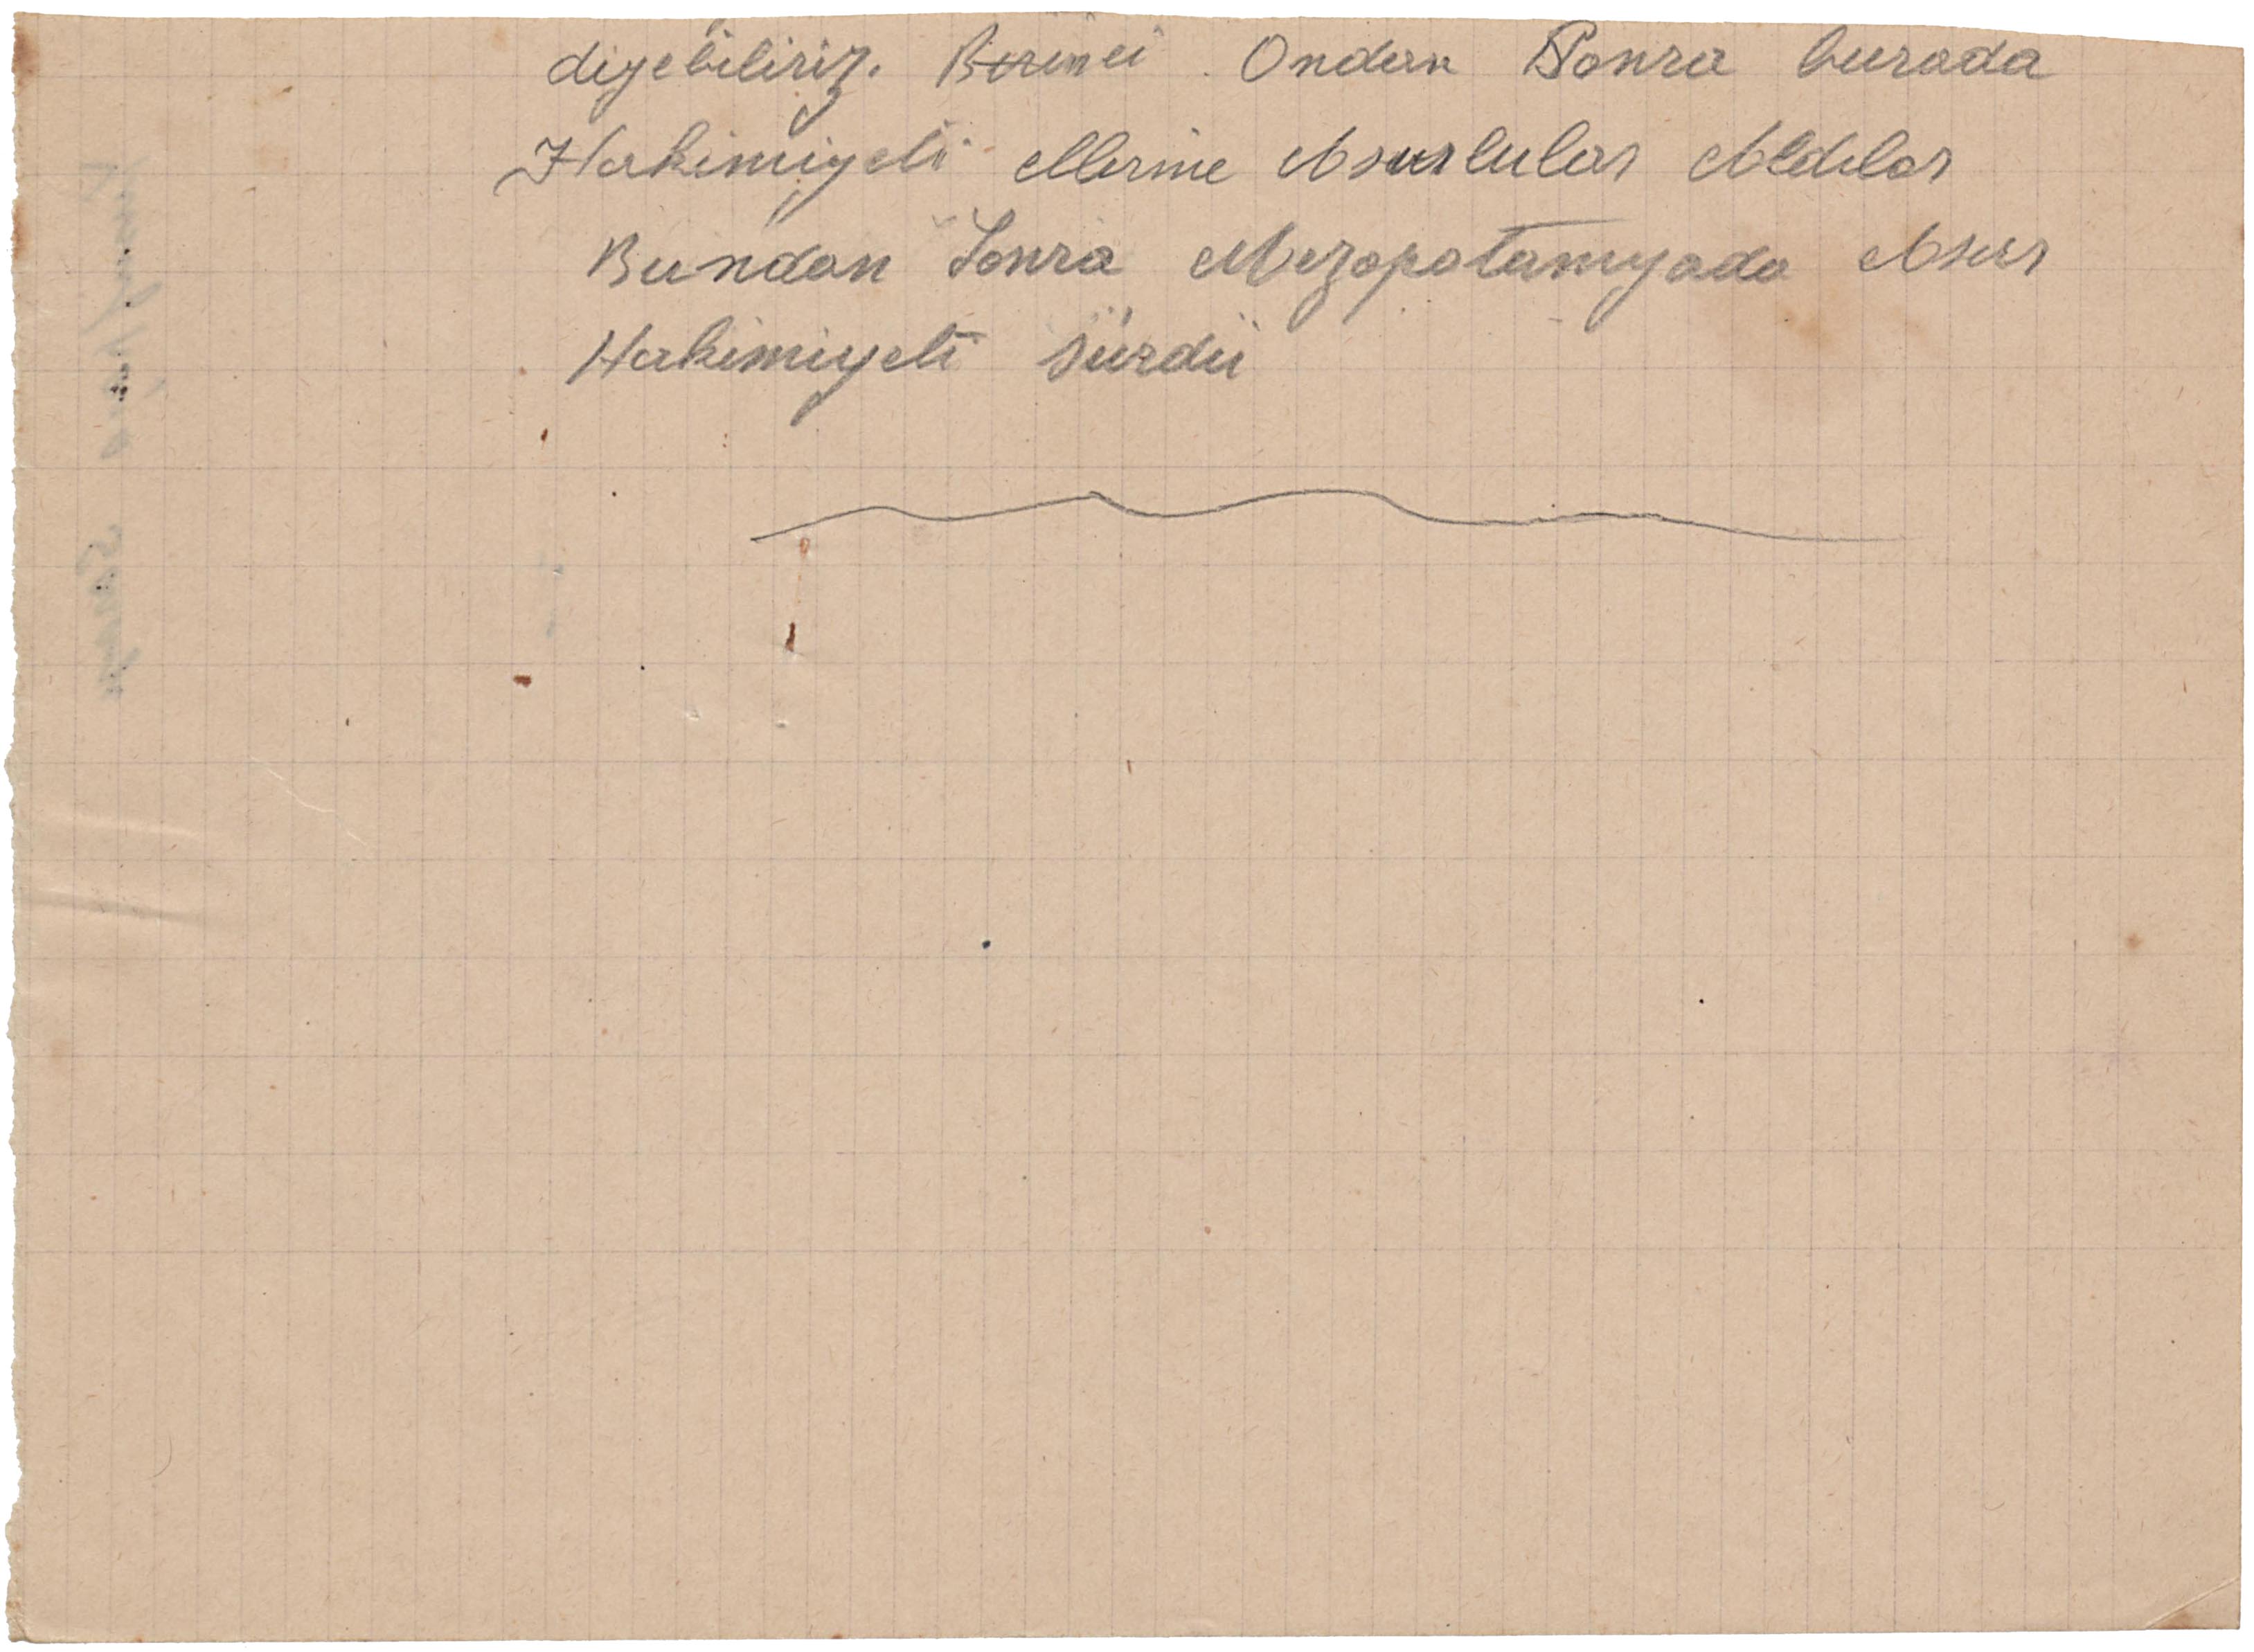 diyebiliriz. Birinci. Ondan Sonra burada
Hakimiyeti ellerine Asurlular Aldılar
Bundan Sonra Mezopotamyada Asur
Hakimiyeti sürdü